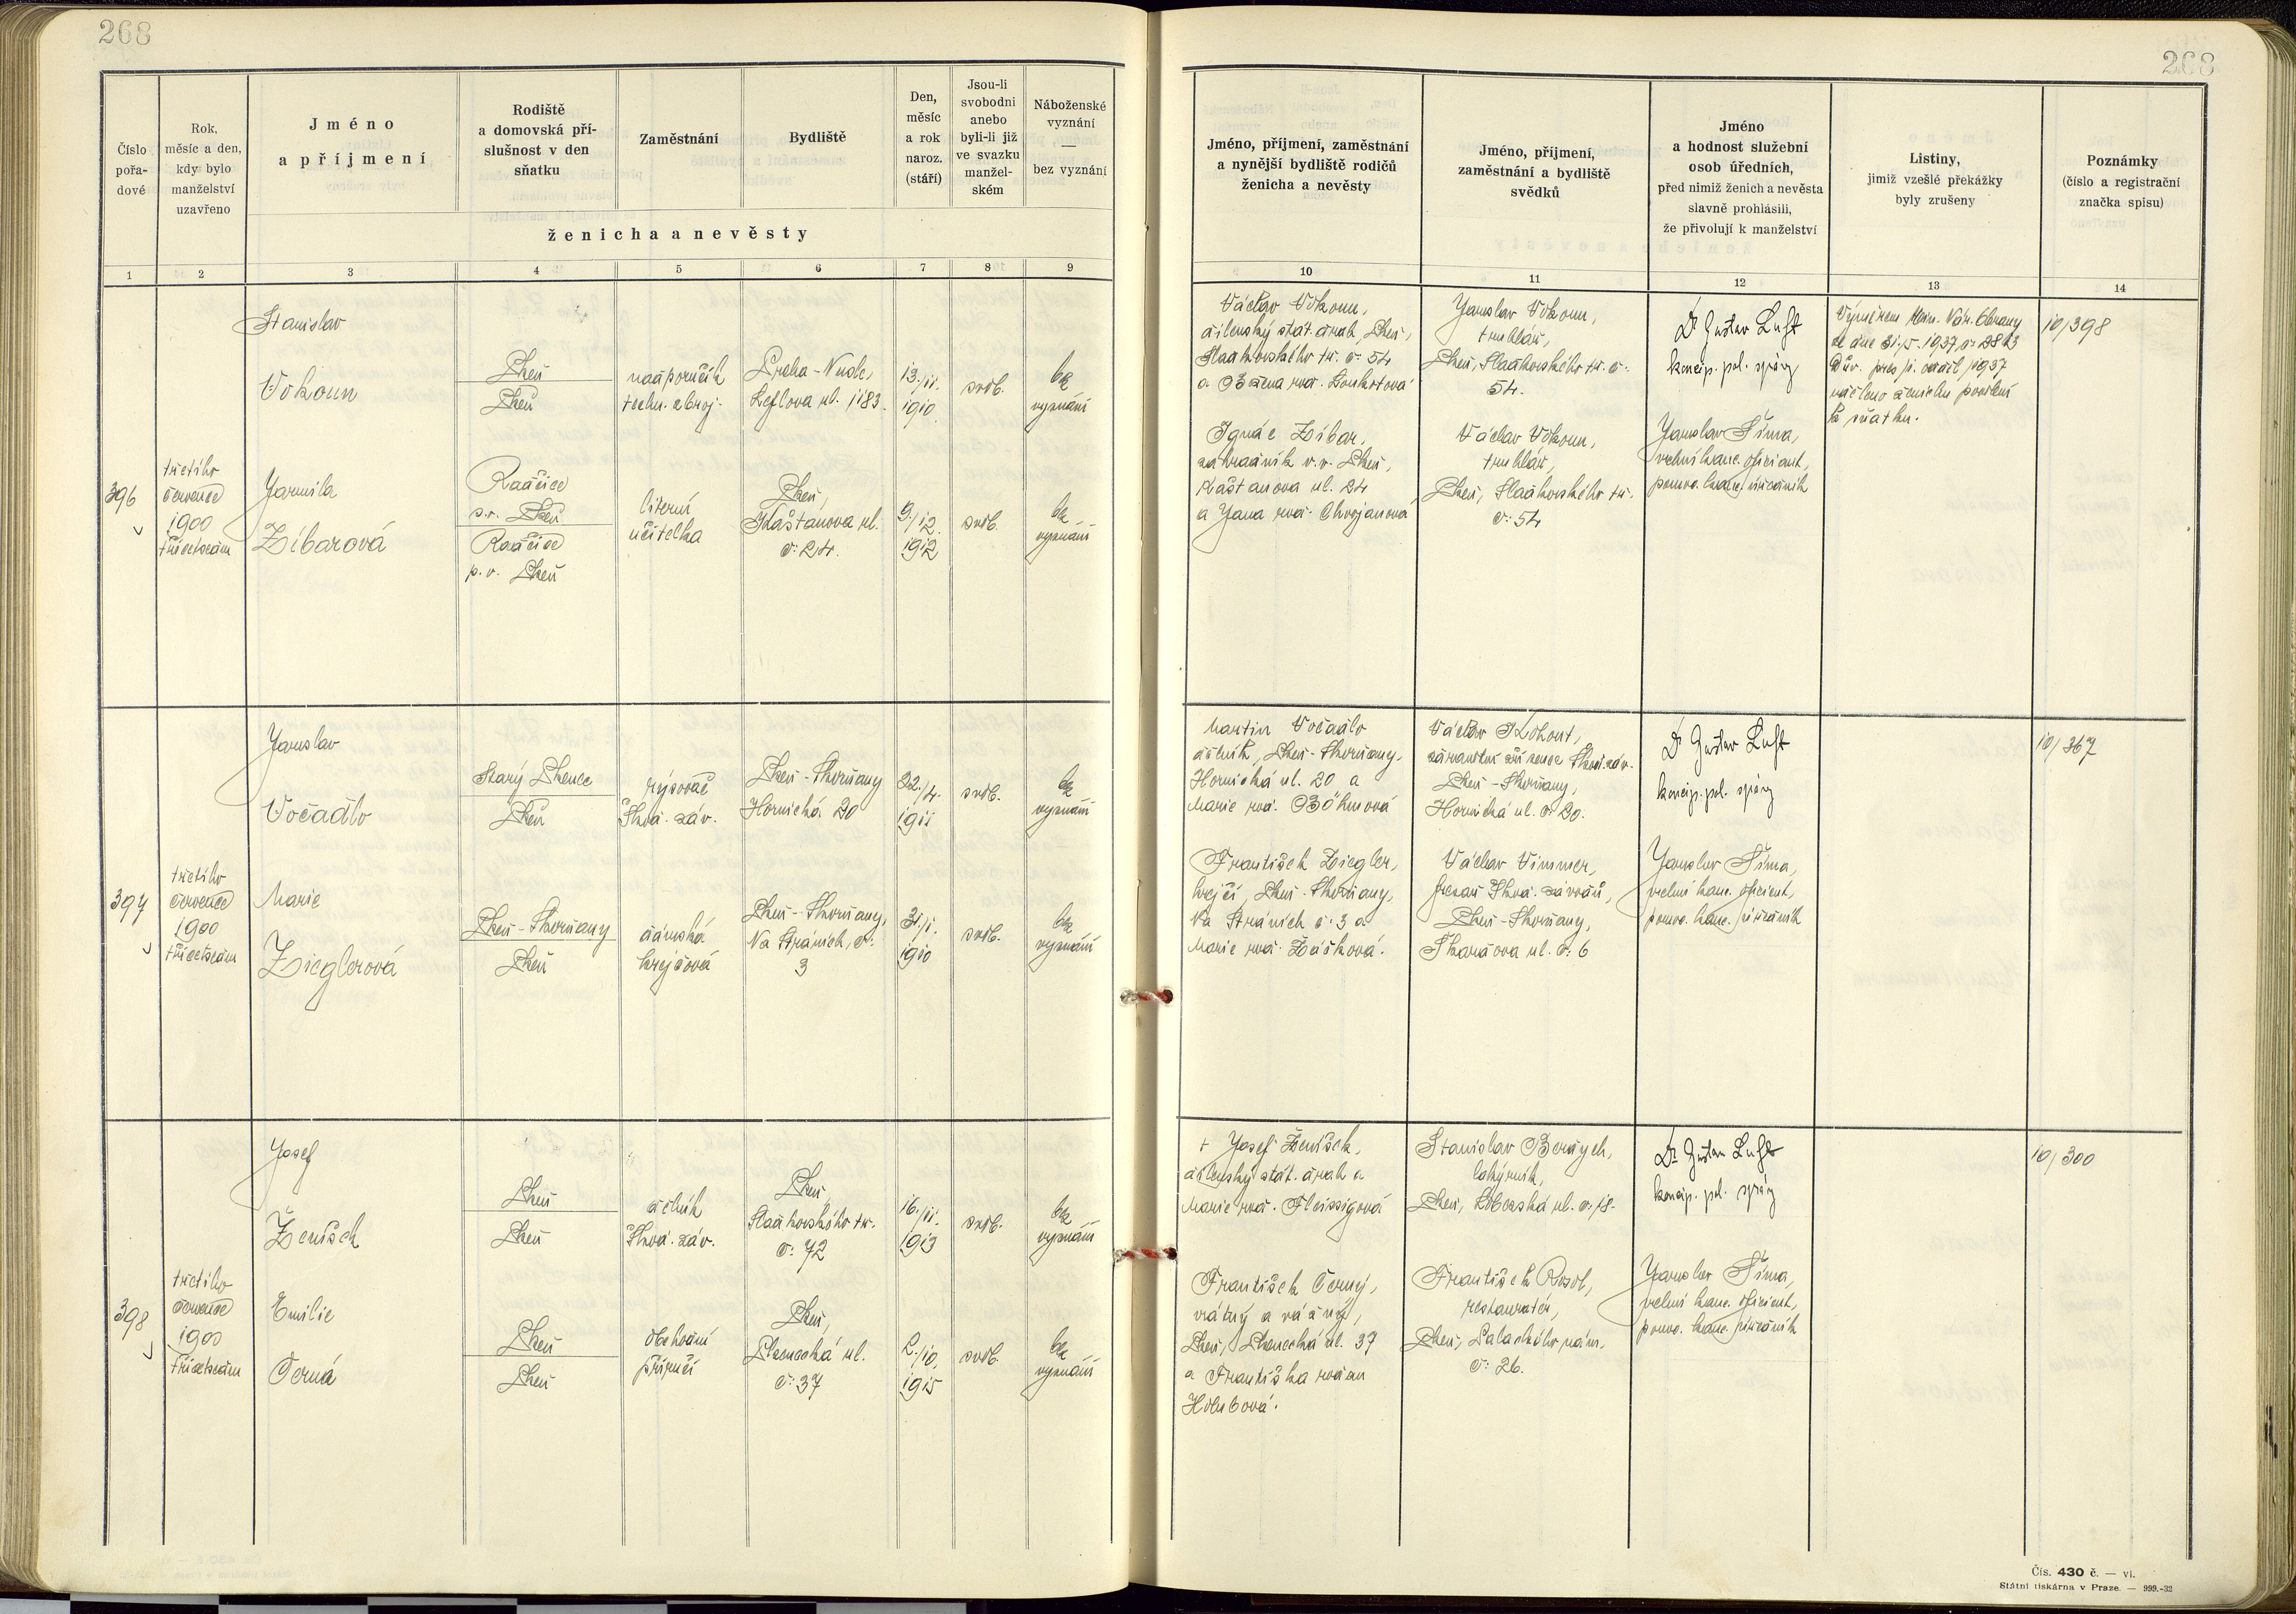 268
268
Číslo
pořa-
dové
Rok,
měsíc a den,
kdy bylo
manželství
uzavřeno
Jméno
a příjmení
Rodiště
a domovská pří-
slušnost v den
sňatku
Zaměstnání
Bydliště
Den,
měsíc
a rok
naroz.
(stáří)
Jsou-li
svobodni
anebo
byli-li již
ve svazku
manžel-
ském
Náboženské
vyznání
—
bez vyznání
ženicha a nevěsty
Jméno, příjmení, zaměstnání
a nynější bydliště rodičů
ženicha a nevěsty
Jméno, příjmení,
zaměstnání a bydliště
svědků
Jméno
a hodnost služební
osob úředních,
před nimiž ženich a nevěsta
slavně prohlásili,
že přivolují k manželství
Listiny,
jimiž vzešlé překážky
byly zrušeny
Poznámky
(číslo a registrační
značka spisu)
1 2 3 4 5 6 7 8 9 10 11 12 13 14
396
třetího
července
1900
třicetsedm
Stanislav
Vokoun
Plzeň
Plzeň
nadporučík
techn. zbroj.
Praha-Nusle,
ul. 1183.
13./11.
1910
svob.
bez
vyznání
Jarmila
Zíbarová
Radčice
p. v. Plzeň
Radčice
p. v. Plzeň
literní
učitelka
Plzeň,
Kaštanova ul.
č. 24.
9./12.
1912
svob.
bez
vyznání
Václav Vokoun,
dílenský stát. zřaď, Plzeň,
Sladkovského tř. č. 54
a Božena roz.
Ignác Zíbar,
zahradník v. v. Plzeň,
Kaštanova ul. 24
a Jana roz. Chvojanová
Jaroslav Vokoun,
truhlář,
Plzeň, Sladkovského tř. č.
54.
Václav Vokoun,
truhlář,
Plzeň, Sladkovského tř.
č. 54
Dr Gustav Luft
koncip. pol. správy
Jaroslav Šíma,
velní kanc. oficiant,
pomoc. kanc. úředník
Výměrem Min. Nár. Obrany
ze dne 31./5. 1937, č. 2813
Dův. pres/1. odděl 1937
uděleno ženichu povolení
k sňatku.
10/398
397
třetího
července
1900
třicetsedm
Jaroslav
Vočadlo
Starý Plzenec
Plzeň
rýsovač
Škod. záv.
Plzeň-Skvrňany
Hornická 20
22./4.
1911
svob.
bez
vyznání
Marie
Zieglerová
Plzeň-Skvrňany
Plzeň
dámská
krejčová
Plzeň-Skvrňany,
Na Stráních, č.
3
31./1.
1910
svob.
bez
vyznání
Martin Vočadlo
dělník, Plzeň-Skvrňany,
Hornická ul. 20 a
Marie roz. Böhmová
František Ziegler,
krejčí, Plzeň-Skvrňany,
Na Stráních č. 3 a
Marie roz. Zášková.
Václav Kohout,
zřízenec Škod. záv.
Plzeň-Skvrňany,
Hornická ul. č. 20.
Václav Vimmer,
frézař Škod. závodů,
Plzeň-Skvrňany,
ul. č. 6
Dr Gustav Luft
koncip. pol. správy
Jaroslav Šíma,
velní kanc. oficiant,
pomoc. kanc. úředník
10/367
398
třetího
července
1900
třicetsedm
Josef
Ženíšek
Plzeň
Plzeň
dělník
Škod. záv.
Plzeň,
Sladkovského tř.
č. 72
16./11.
1913
svob.
bez
vyznání
Emilie
Černá
Plzeň
Plzeň
obchodní
příručí
Plzeň,
Plzenecká ul.
č. 37
2./10.
1915
svob.
bez
vyznání
† Josef Ženíšek,
dílenský stát. zřaď a
Marie roz. Fleissigová
František Černý,
vrátný a vážný,
Plzeň, Plzenecká ul. 37
a Františka rozen
Holubová.
Stanislav Berdych,
lakýrník,
Plzeň, Koterovská ul. č. 18.
František Rosol,
restauratér,
Plzeň, Palackého nám.
č. 26.
Dr Gustav Luft
koncip. pol. správy
Jaroslav Šíma,
velní kanc. oficiant,
pomoc. kanc. úředník
10/300
Čís. 430 č. — vi.
Státní tiskárna v Praze. — 999.-32